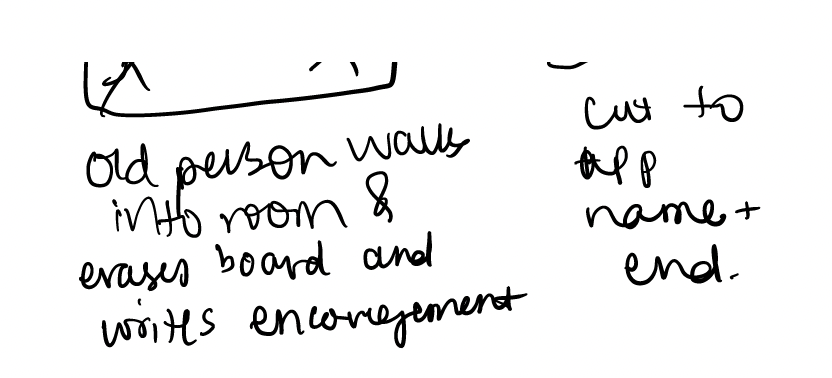 old person walks
into room &
erases board and
writes encouragement
cut to
app
name +
end.